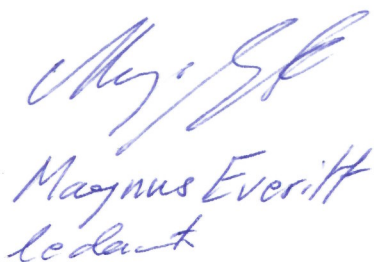 Magnus Everitt
ledamot